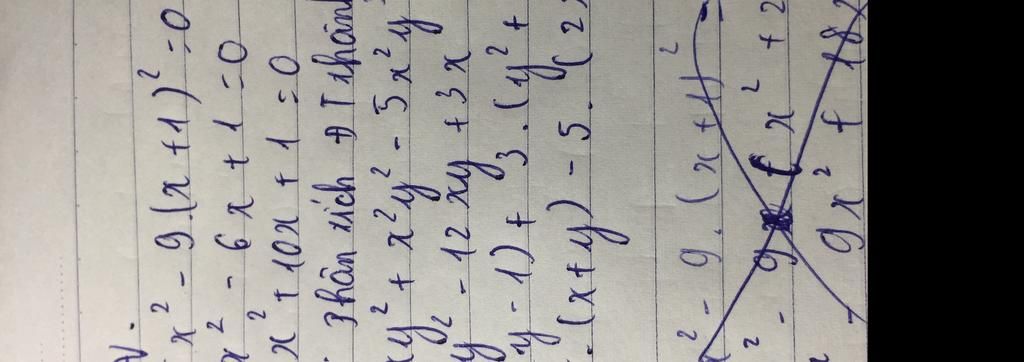 x² - 9.(x+1)² = 0
x² - 6x + 1 = 0
x² + 10x + 1 = 0
Phân tích ĐT thành
xy² + x²y² - 5x²y
y² - 12xy + 3x
y - 1) + 3.(y² +
.(x+y) - 5.(2
x² - 9.(x+1)²
² - 9 x² + 2
² 9x² + 18